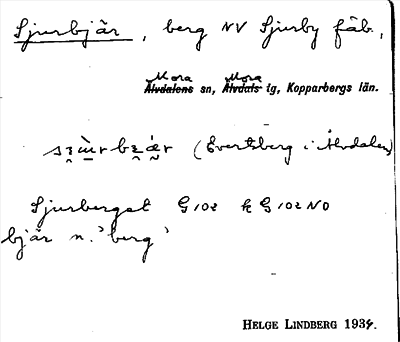 Sjurbjär, berg NV Sjurby fäb.,
Mora Mora
Älvdalens sn, Älvdals tg, Kopparbergs län.
(Evertsberg i Älvdalen)
Sjurberget G102 k G102 NO
bjär n. 'berg'
HELGE LINDBERG 1934.